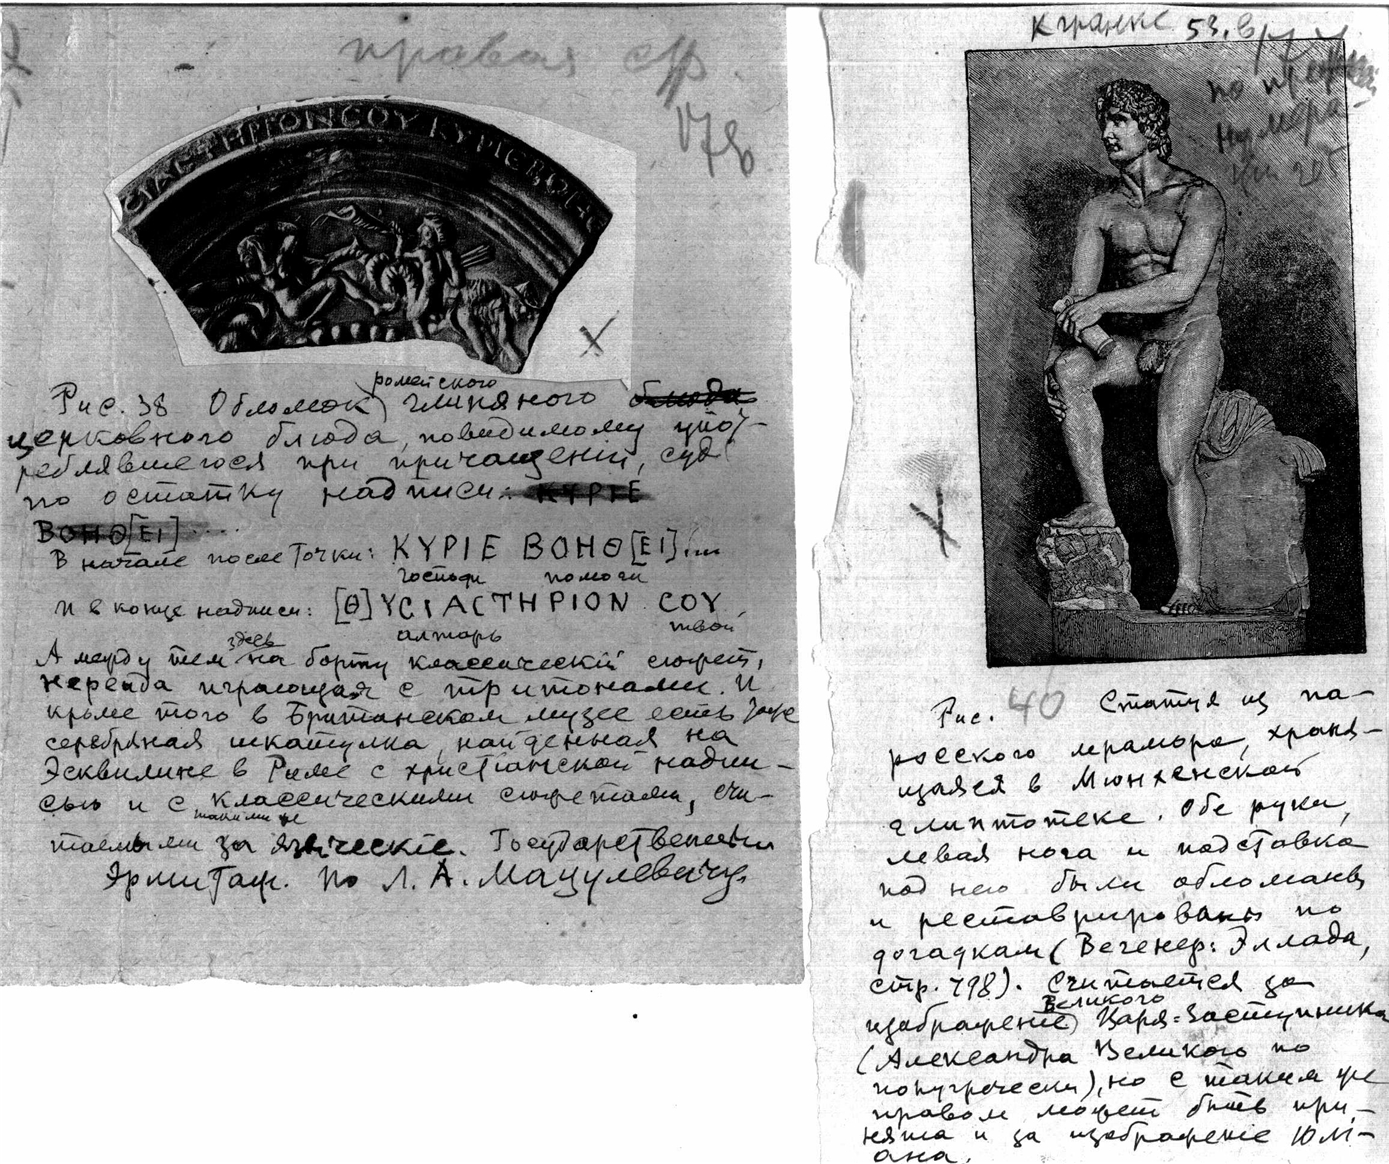 правая стр.
178
СІАСТНРІОNСОУ КУРІЕ ВОНΘ
Рис. 38 Обломок ромейского глиняного
церковного блюда, повидимому упот-
реблявшегося при причащеніи, судя
по остатку надписи: ΚΥΡΙΕ
ΒΟΗΘ[ΕΙ]
В начале после точки: ΚΥΡΙΕ ΒΟΗΘ[ΕΙ]
господи помоги
и в конце надписи: [Θ]ΥСΙΑСΤΗΡΙΟΝ СΟΥ
алтарь твой
А между тем здесь на борту классическій сюжет,
нереида играющая с тритонами. И
кроме того в Британском музее есть даже
серебряная шкатулка, найденная на
Эсквилине в Риме с христіанской надпи-
сью и с такими же классическими сюжетами, счи-
таемыми за языческіе. Государственный
Эрмитаж. По Л. А. Мацулевичу.
К гранке 53, в
по
нумера-
Рис. 40 Статуя из па-
росского мрамора, храня-
щаяся в Мюнхенской
глиптотеке. Обе руки,
левая нога и подставка
под нею были обломаны
и реставрированы по
догадкам (Вегенер: Эллада,
стр. 498). Считается за
изображеніе Великого Царя-Заступника
(Александра Великого по
полугречески), но с таким же
правом может быть при-
нята и за изображеніе Юлі-
ана.